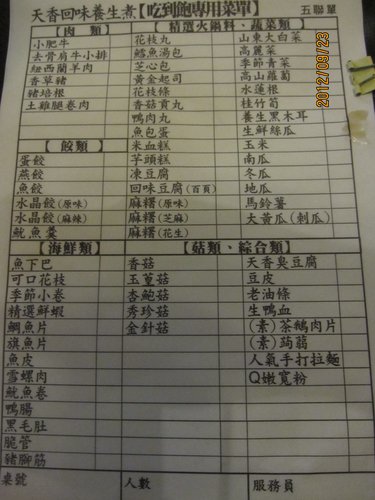 天香回味養生煮【吃到飽專用菜單】 五聯單
【肉 類】
小肥牛
去骨肩牛小排
紐西蘭羊肉
香草豬
豬培根
土雞腿卷肉
【 餃類 】
蛋餃
燕餃
魚餃
水晶餃(原味)
水晶餃(麻辣)
魷魚羹
【精選火鍋料、蔬菜類】
花枝丸
鱈魚湯包
芝心包
黃金起司
花枝條
香菇貢丸
鴨肉丸
魚包蛋
米血糕
芋頭糕
凍豆腐
回味豆腐(百頁)
麻糬(原味)
麻糬(芝麻)
麻糬(花生)
山東大白菜
高麗菜
季節青菜
高山蘿蔔
水蓮根
桂竹筍
養生黑木耳
生鮮絲瓜
玉米
南瓜
冬瓜
地瓜
馬鈴薯
大黃瓜(刺瓜)
【海鮮類】
魚下巴
可口花枝
季節小卷
精選鮮蝦
鯛魚片
旗魚片
魚皮
雪螺肉
魷魚卷
鴨腸
黑毛肚
脆管
豬腳筋
【菇類、綜合類】
香菇
玉蕈菇
杏鮑菇
秀珍菇
金針菇
天香臭豆腐
豆皮
老油條
生鴨血
(素)茶鵝肉片
(素)蒟蒻
人氣手打拉麵
Q嫩寬粉
桌號 人數 服務員
2012/09/23